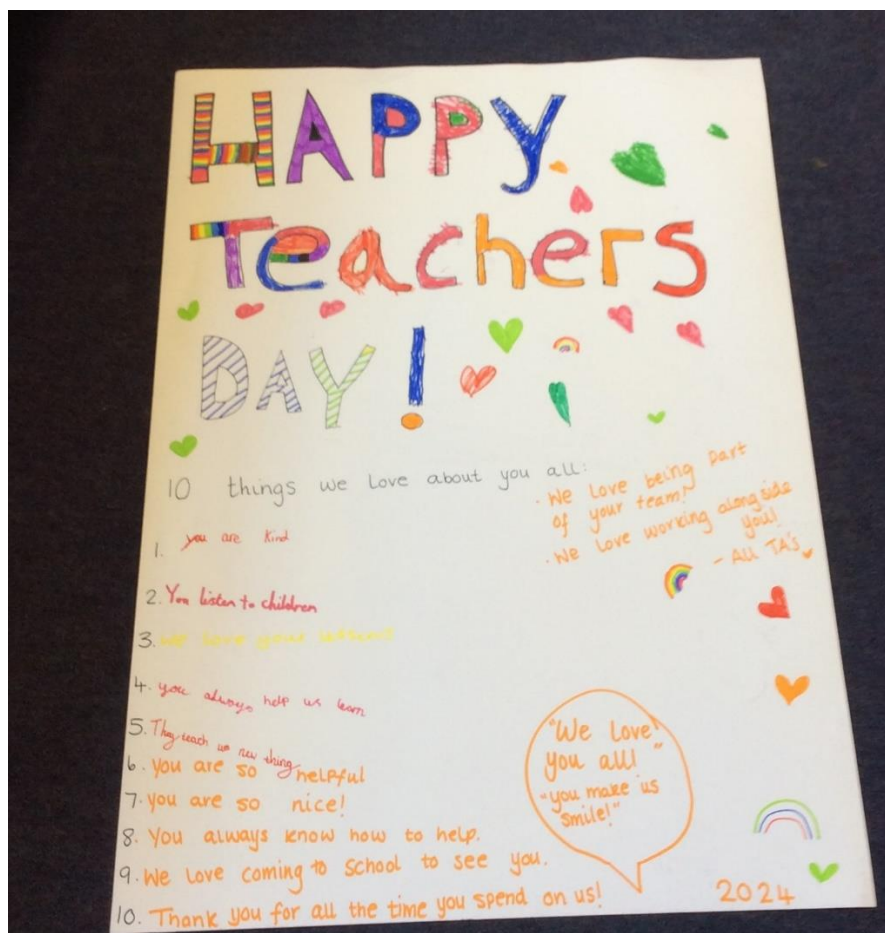 HAPPY
Teachers
DAY!
10 things we love about you all:
· We Love being part
of your team!
· We love working alongside
you!
- All TA's
1. you are kind
2. You listen to children
3. We love your lessons
4. you always help us learn
5. They teach us new thing
6. you are so helpful
7. you are so nice!
8. You always know how to help.
9. We Love coming to school to see you.
10. Thank you for all the time you spend on us!
"We Love
you all!"
"you make us
smile!"
2024